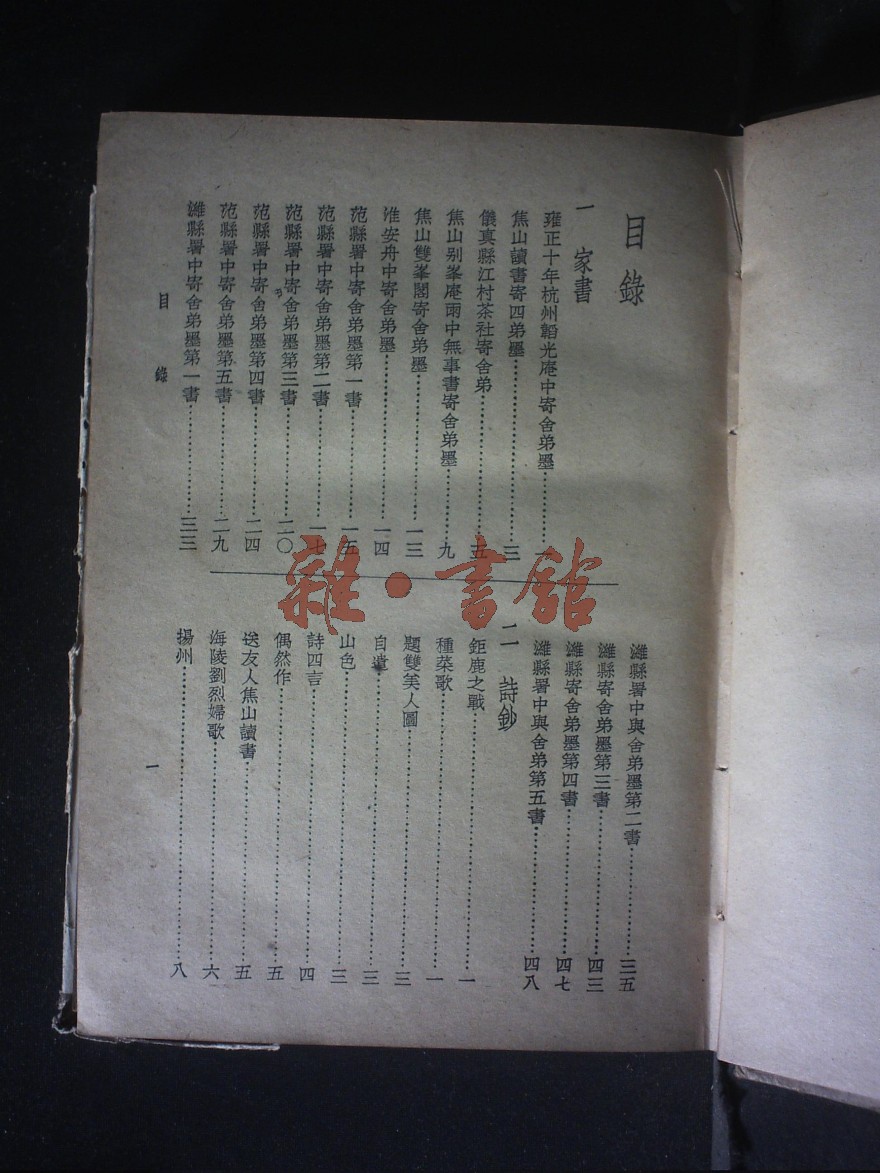 目錄
一 家書
雍正十年杭州韜光庵中寄舍弟墨…………一
焦山讀書寄四弟墨…………三
儀真縣江村茶社寄舍弟…………五
焦山別峯庵雨中無事書寄舍弟墨…………九
焦山雙峯閣寄舍弟墨…………一三
淮安舟中寄舍弟墨…………一四
范縣署中寄舍弟墨第一書…………一五
范縣署中寄舍弟墨第二書…………一七
范縣署中寄舍弟墨第三書…………二〇
范縣署中寄舍弟墨第四書…………二四
范縣署中寄舍弟墨第五書…………二九
濰縣署中寄舍弟墨第一書…………三三
濰縣署中與舍弟墨第二書…………三五
濰縣寄舍弟墨第三書…………四三
濰縣寄舍弟墨第四書…………四七
濰縣署中與舍弟第五書…………四八
二 詩鈔
鉅鹿之戰…………一
種菜歌…………一
題雙美人圖…………三
自遣…………三
山色…………三
詩四言…………四
偶然作…………五
送友人焦山讀書…………五
海陵劉烈婦歌…………六
揚州…………八
目錄
一
雜·書館